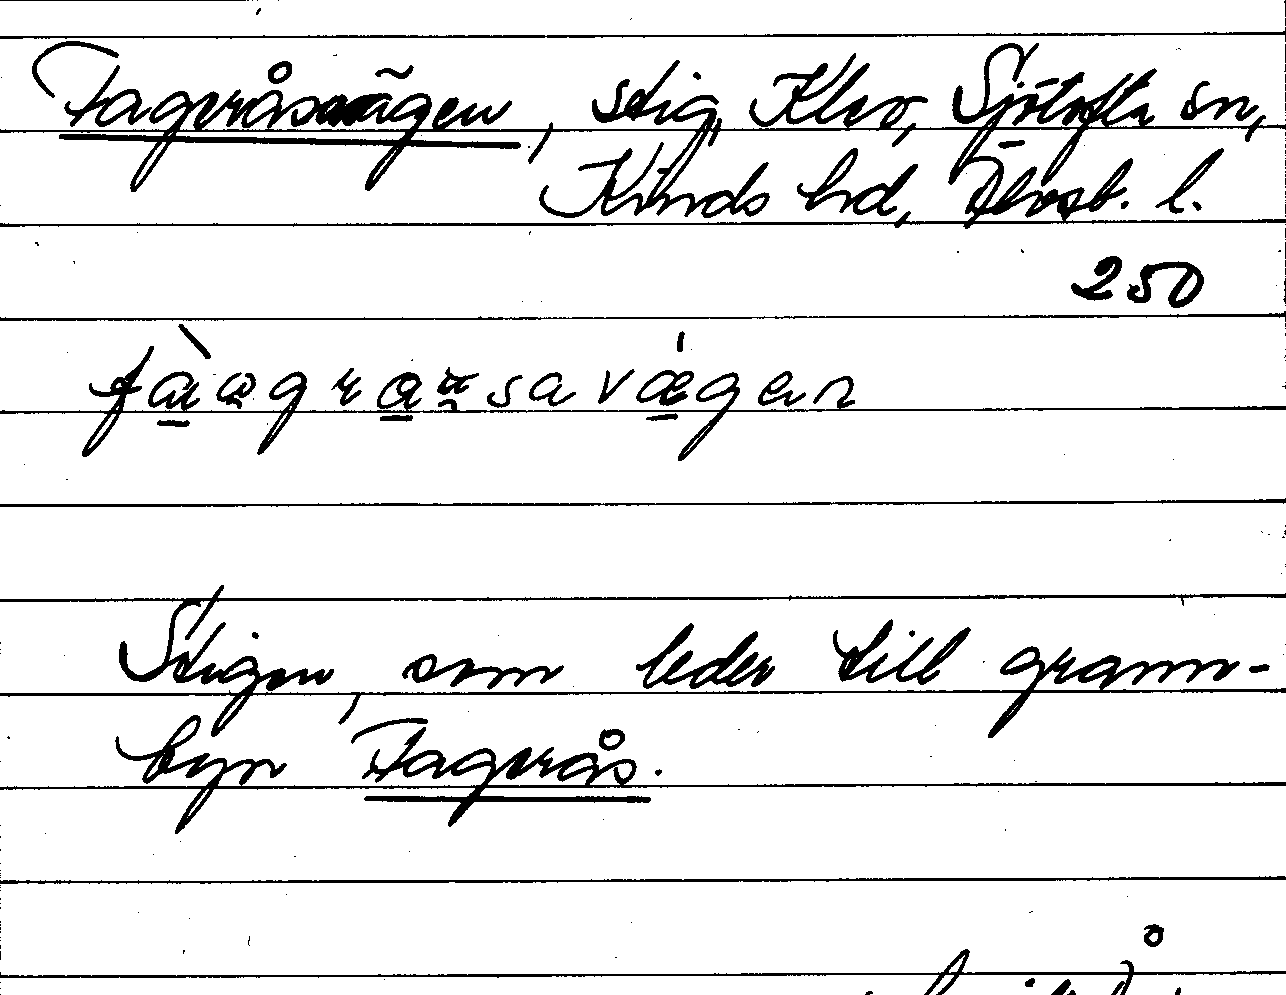 Fagråsavägen, stig, Klev, Sjötofta sn,
Kinds hd, Älvsb. l.
250
Stigen, som leder till grann-
byn Fagrås.